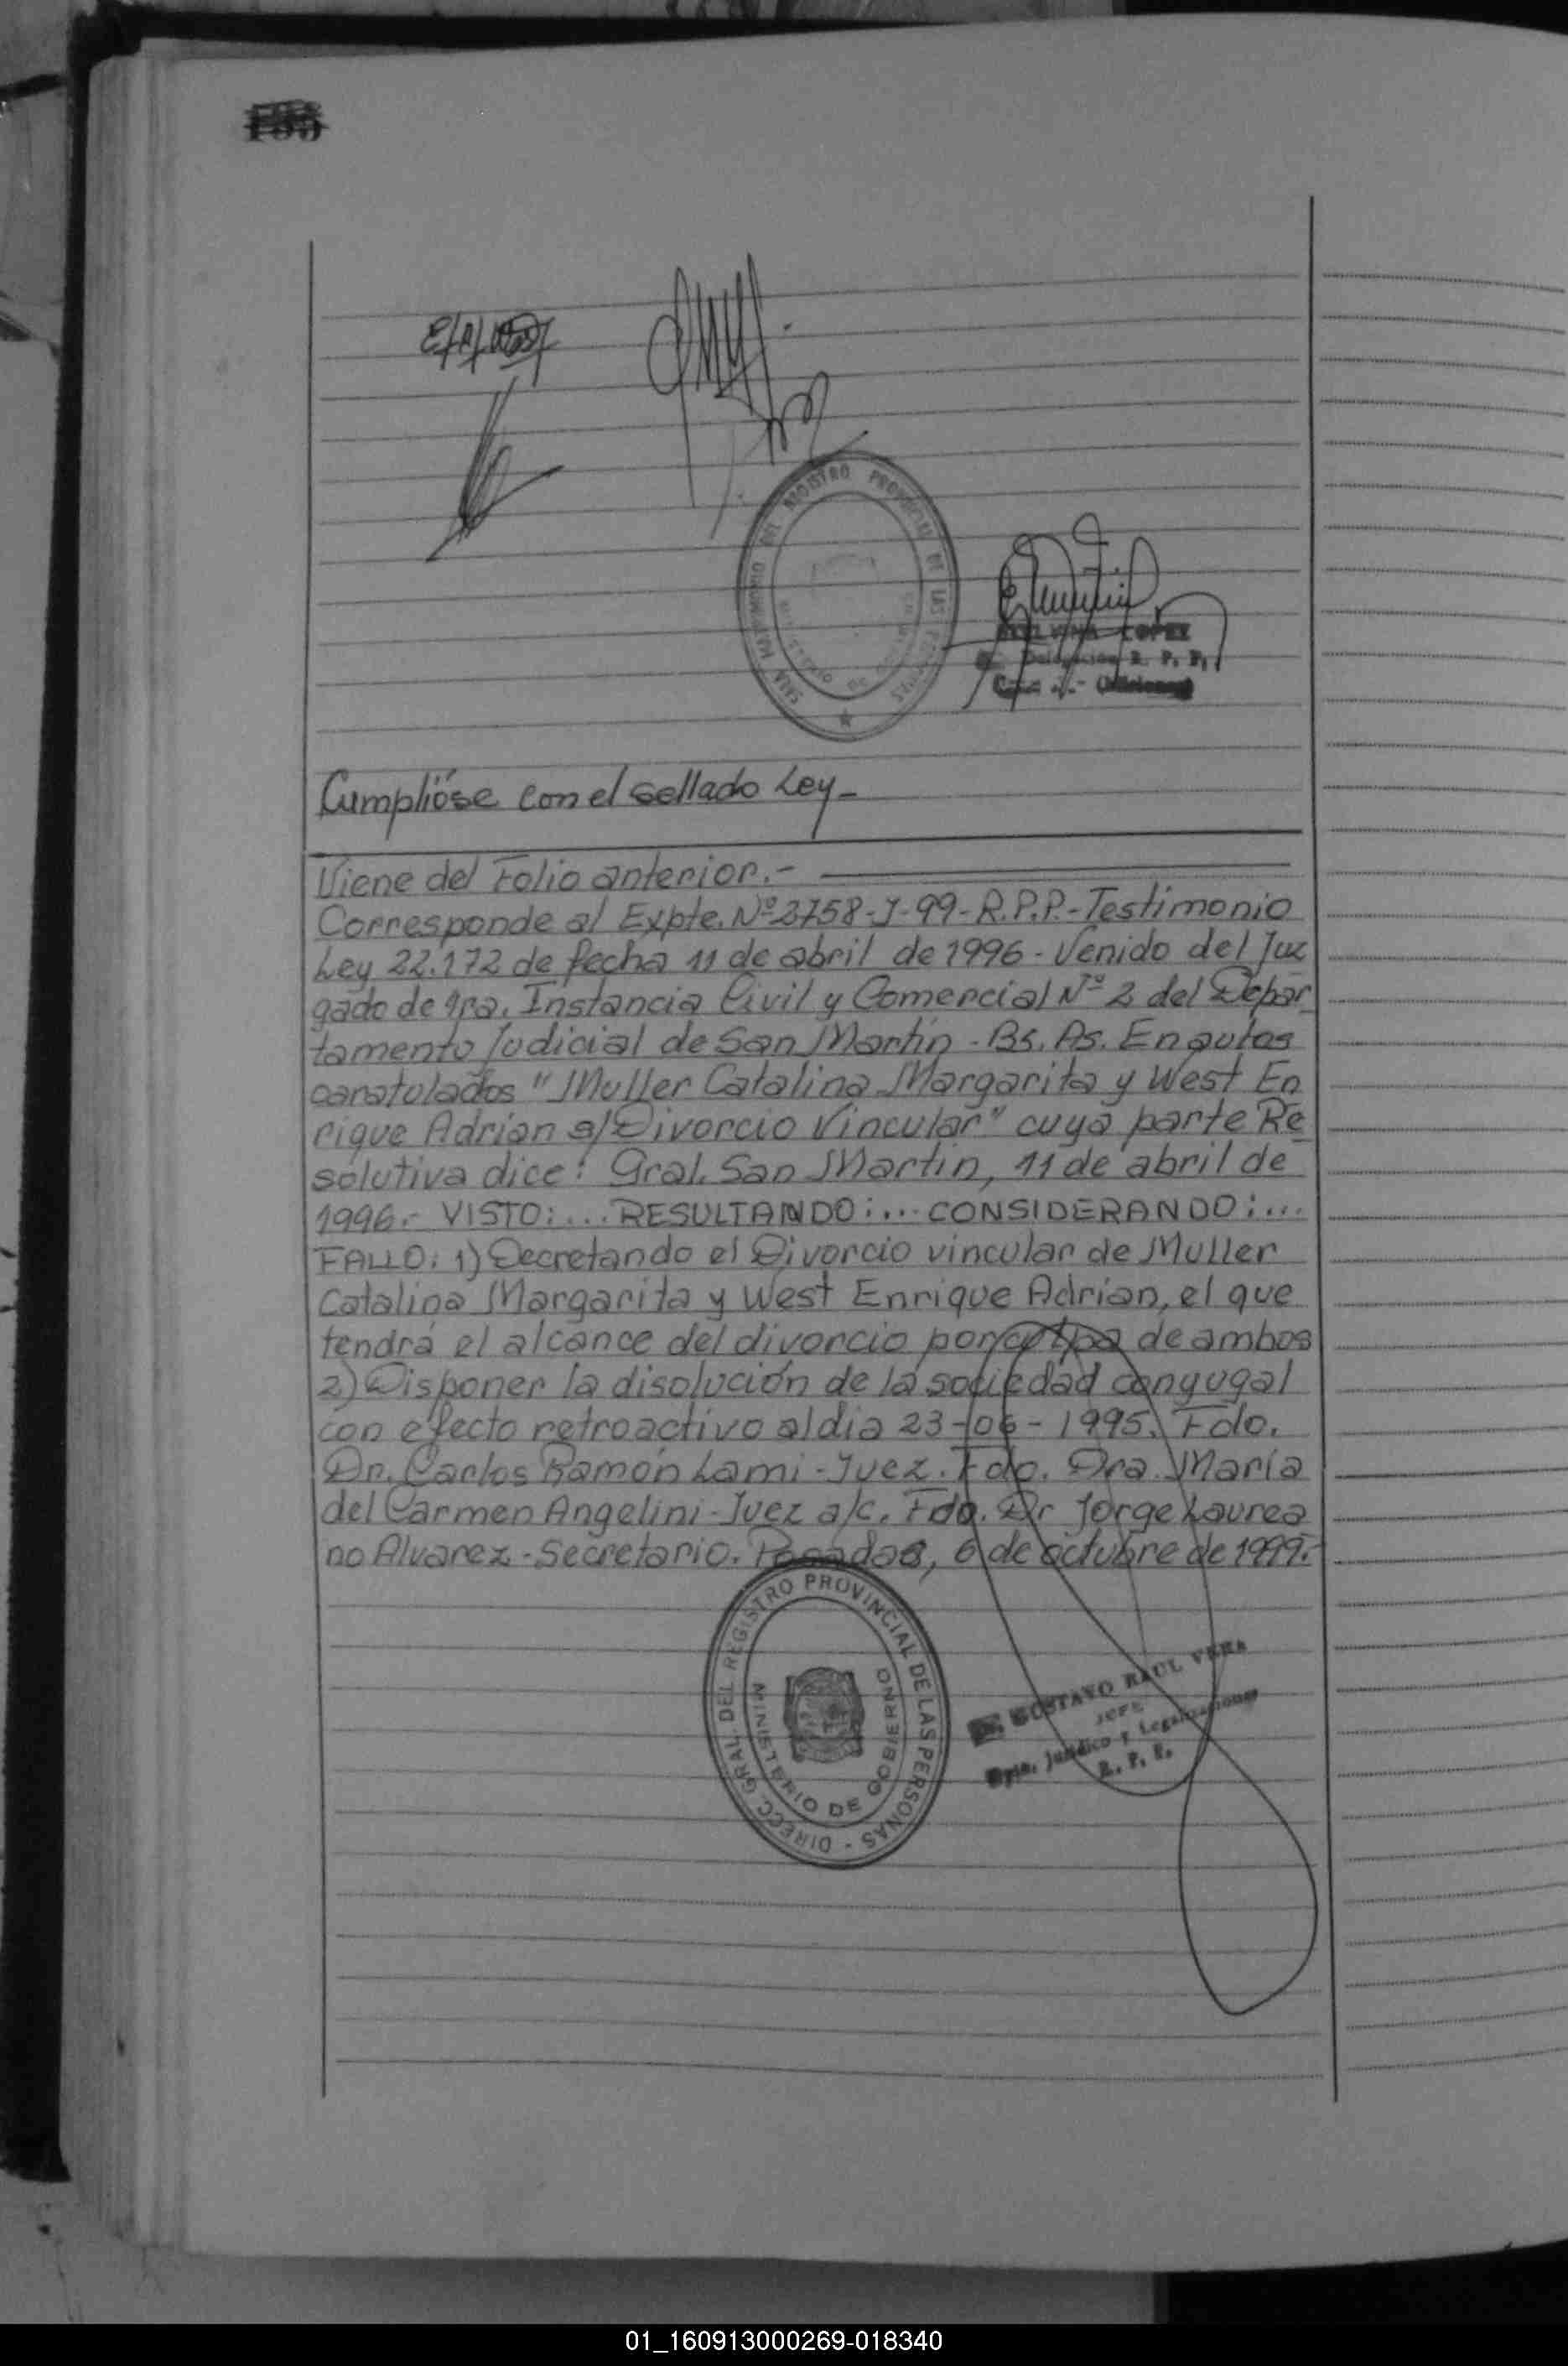 SALA MATRIMONIO DEL REGISTRO PROVINCIAL DE LAS PERSONAS
MINISTERIO DE GOBIERNO
LOPEZ
Delegación R. P. P.
Cumplióse con el sellado Ley-
Viene del Folio anterior.-
Corresponde al Expte. Nº 2758-J-99-R.P.P.-Testimonio
Ley 22.172 de fecha 11 de abril de 1996- Venido del Juz
gado de 1ra. Instancia Civil y Comercial Nº 2 del Depar
tamento Judicial de San Martín - Bs. As. En autos
caratulados "Muller Catalina Margarita y West En
rique Adrian s/Divorcio Vincular" cuya parte Re
solutiva dice: Gral. San Martín, 11 de abril de
1996.- VISTO:... RESULTANDO:... CONSIDERANDO:...
FALLO: 1) Decretando el Divorcio vincular de Muller
Catalina Margarita y West Enrique Adrian, el que
tendrá el alcance del divorcio por culpa de ambos
2) Disponer la disolución de la sociedad conyugal
con efecto retroactivo al dia 23-06-1995. Fdo.
Dr. Carlos Ramón Lami - Juez. Fdo. Dra. María
del Carmen Angelini - Juez a/c. Fdo. Dr Jorge Laurea
no Alvarez - Secretario. Posadas, 6 de octubre de 1999.-
DIRECC. GRAL. DEL REGISTRO PROVINCIAL DE LAS PERSONAS -
MINISTERIO DE GOBIERNO
Dr. GUSTAVO RAUL VERA
JEFE
Dpto. Jurídico y Legalizaciones
R. P. P.
01_160913000269-018340